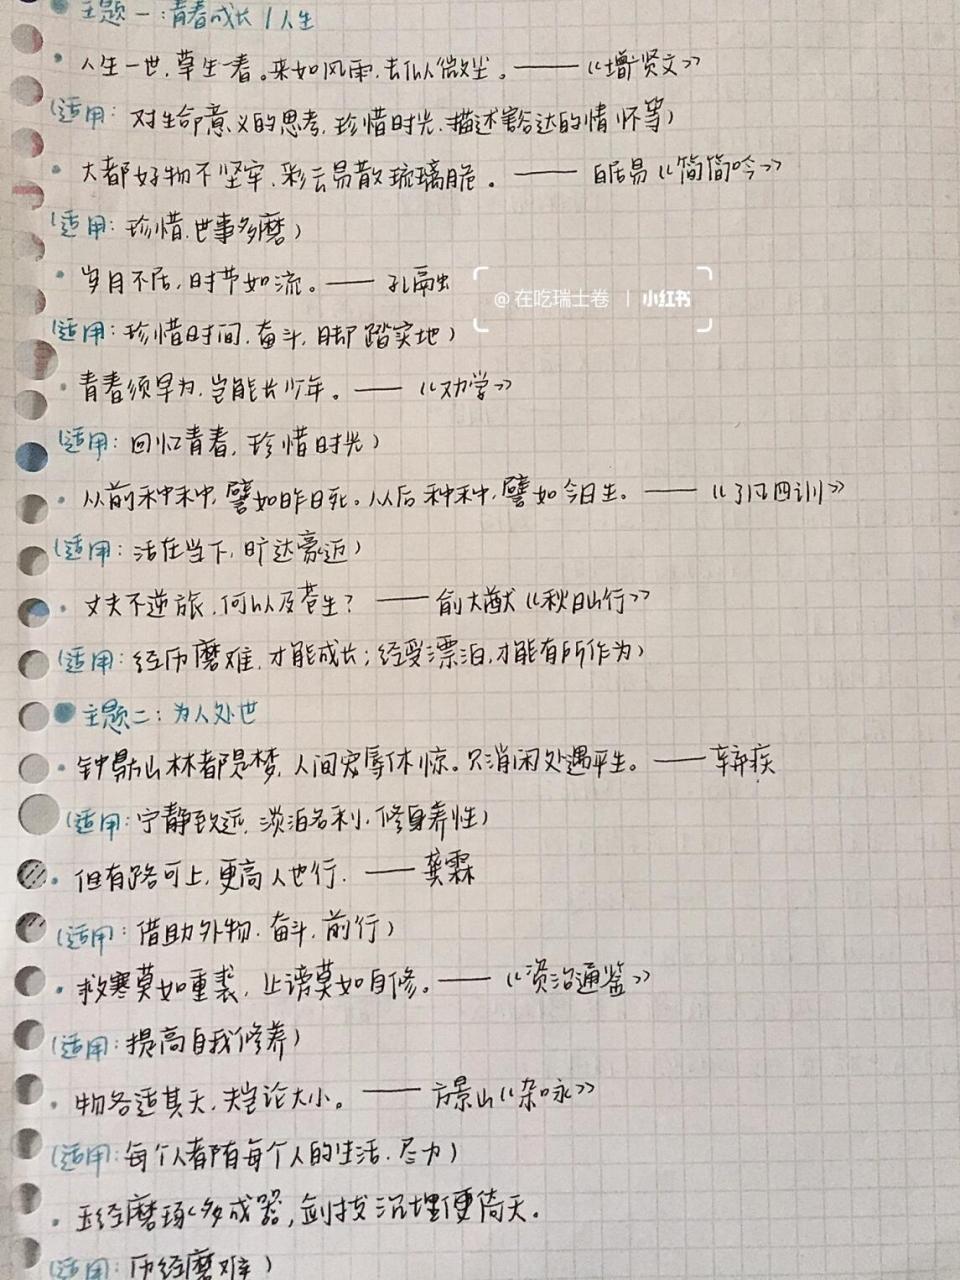 主题一：青春成长/人生
• 人生一世，草生一春。来如风雨，去似微尘。——《增广贤文》
(适用：对生命意义的思考，珍惜时光，描述豁达的情怀等)
• 大都好物不坚牢，彩云易散琉璃脆。——白居易《简简吟》
(适用：珍惜，世事多磨)
• 岁月不居，时节如流。——孔融
@在吃瑞士卷 | 小红书
(适用：珍惜时间，奋斗，脚踏实地)
• 青春须早为，岂能长少年。——《劝学》
(适用：回忆青春，珍惜时光)
• 从前种种，譬如昨日死。从后种种，譬如今日生。——《了凡四训》
(适用：活在当下，旷达豪迈)
• 丈夫不逆旅，何以及苍生？——俞大猷《秋日山行》
(适用：经历磨难，才能成长；经受漂泊，才能有所作为)
主题二：为人处世
• 钟鼎山林都是梦，人间宠辱休惊。只消闲处遇平生。——辛弃疾
(适用：宁静致远，淡泊名利，修身养性)
• 但有路可上，更高人也行。——龚霖
(适用：借助外物，奋斗，前行)
• 救寒莫如重裘，止谤莫如自修。——《资治通鉴》
(适用：提高自我修养)
• 物各适其天，岂论大小。——方景山《杂咏》
(适用：每个人都有每个人的生活，尽力)
• 玉经磨琢多成器，剑拔沉埋便倚天。
(适用：历经磨难)